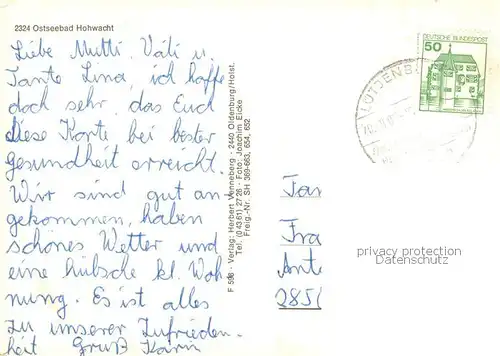 2324 Ostseebad Hohwacht
Liebe Mutti, Vati u.
Tante Lina, ich hoffe
doch sehr, das Euch
diese Karte bei bester
gesundheit erreicht.
Wir sind gut an-
gekommen, haben
schönes Wetter und
eine hübsche kl. Woh-
nung. Es ist alles
zu unserer Zufrieden-
heit Gruß Karin
F 596 - Verlag: Herbert Venneberg - 2440 Oldenburg/Holst.
Tel. (0 43 61) 27 28 - Foto: Joachim Eicke
Freig.-Nr. SH 369-663, 654, 652
DEUTSCHE BUNDESPOST
50
LÜTJENB
Fam
Fra
Ante
285
privacy protection
Datenschutz